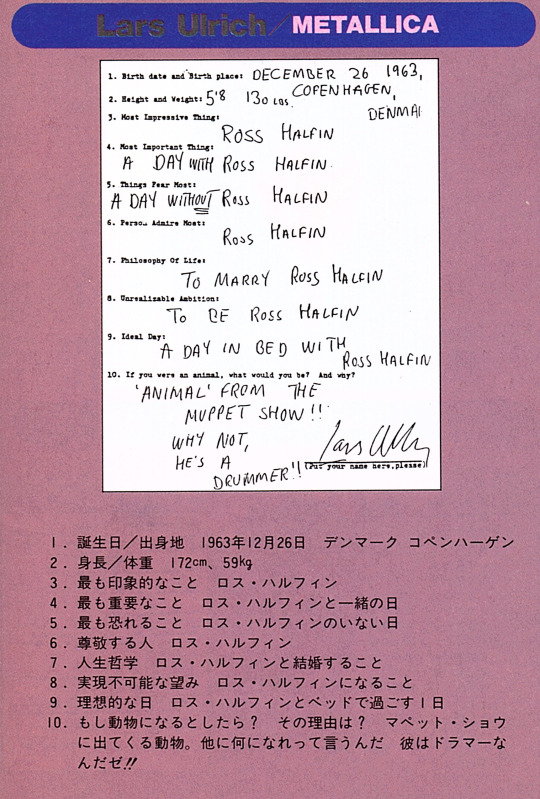 Lars Ulrich/METALLICA
1. Birth date and Birth place: DECEMBER 26 1963,
COPENHAGEN,
2. Height and Weight: 5'8 130 LBS.
DENMA
3. Most Impressive Thing:
ROSS HALFIN
4. Most Important Thing:
A DAY WITH ROSS HALFIN.
5. Things Fear Most:
A DAY WITHOUT ROSS HALFIN
6. Person Admire Most:
ROSS HALFIN
7. Philosophy Of Life:
TO MARRY ROSS HALFIN
8. Unrealizable Ambition:
TO BE ROSS HALFIN
9. Ideal Day:
A DAY IN BED WITH
ROSS HALFIN
10. If you were an animal, what would you be? And why?
'ANIMAL' FROM THE
MUPPET SHOW!!
WHY NOT,
HE'S A
DRUMMER!!
Lars Ulrich
(Put your name here,please)
1. 誕生日／出身地 1963年12月26日 デンマーク コペンハーゲン
2. 身長／体重 172cm、59kg
3. 最も印象的なこと ロス・ハルフィン
4. 最も重要なこと ロス・ハルフィンと一緒の日
5. 最も恐れること ロス・ハルフィンのいない日
6. 尊敬する人 ロス・ハルフィン
7. 人生哲学 ロス・ハルフィンと結婚すること
8. 実現不可能な望み ロス・ハルフィンになること
9. 理想的な日 ロス・ハルフィンとベッドで過ごす1日
10. もし動物になるとしたら？ その理由は？ マペット・ショウ
に出てくる動物。他に何になれって言うんだ 彼はドラマーな
んだゼ!!